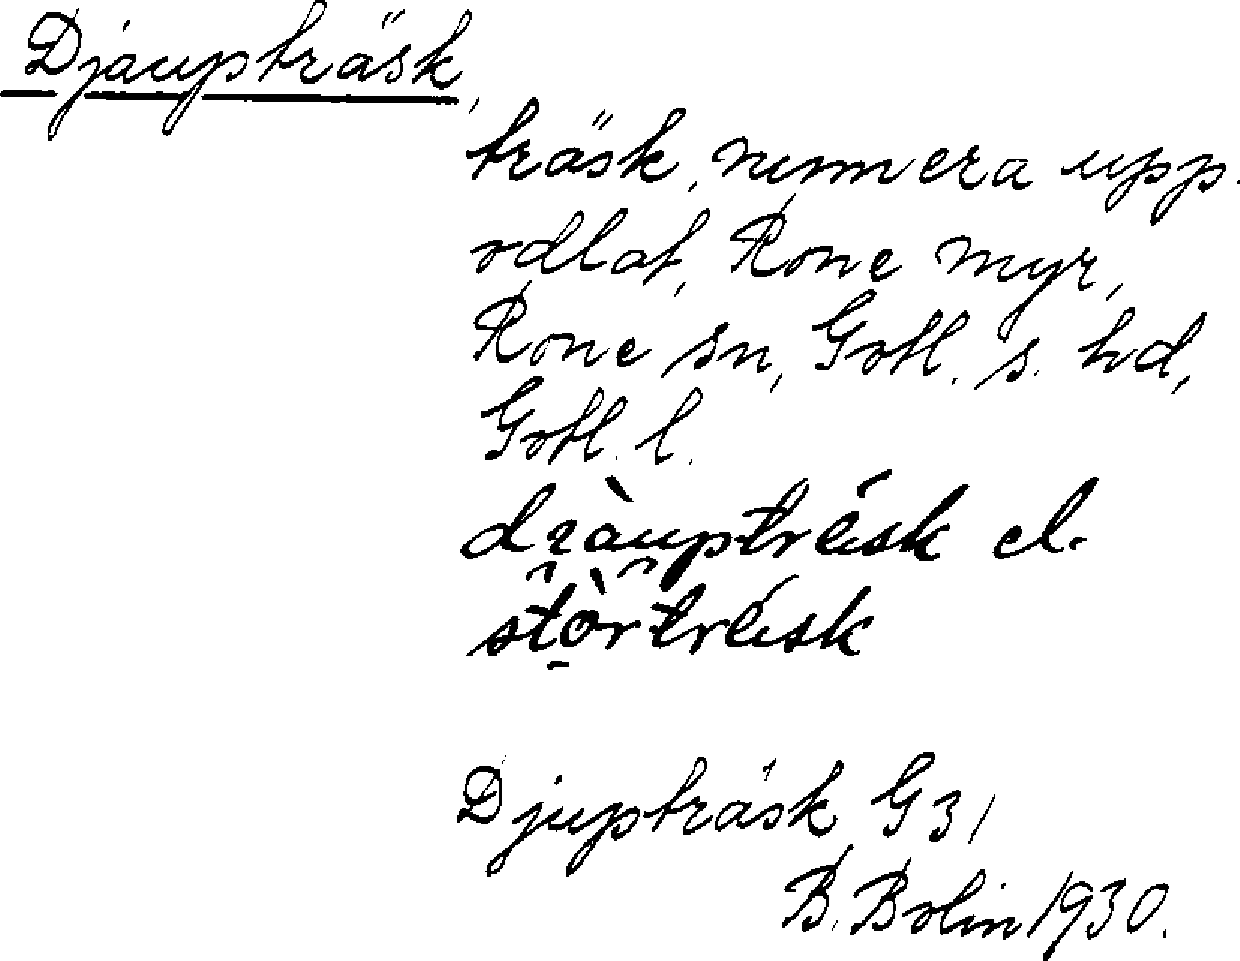 Djaupträsk,
träsk, numera upp-
odlat, Rone myr,
Rone sn, Gotl. s. hd,
Gotl. l.
el.
Djupträsk G 31
B. Bolin 1930.